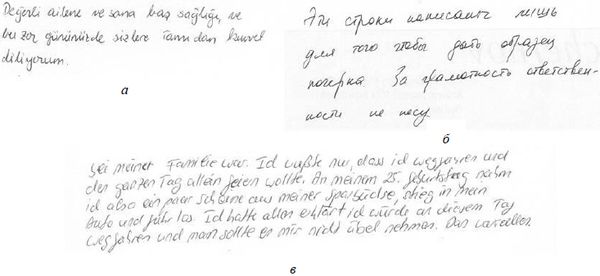 Değerli ailene ve sana baş sağlığı, ve
bu zor gününüzde sizlere Tanrıdan kuvvet
diliyorum.
а
Эти строки написаны лишь
для того чтобы дать образец
почерка За грамотность ответствен-
ности не несу
б
bei meiner Familie war. Ich wußte nur, dass ich wegfahren und
den ganzen Tag allein feiern wollte. An meinem 25. Geburtstag nahm
ich also ein paar Scheine aus meiner Sparbüchse, stieg in mein
Auto und fuhr los. Ich hatte allen erklärt ich würde an diesem Tag
wegfahren und man sollte es mir nicht übel nehmen. Das war allen
в